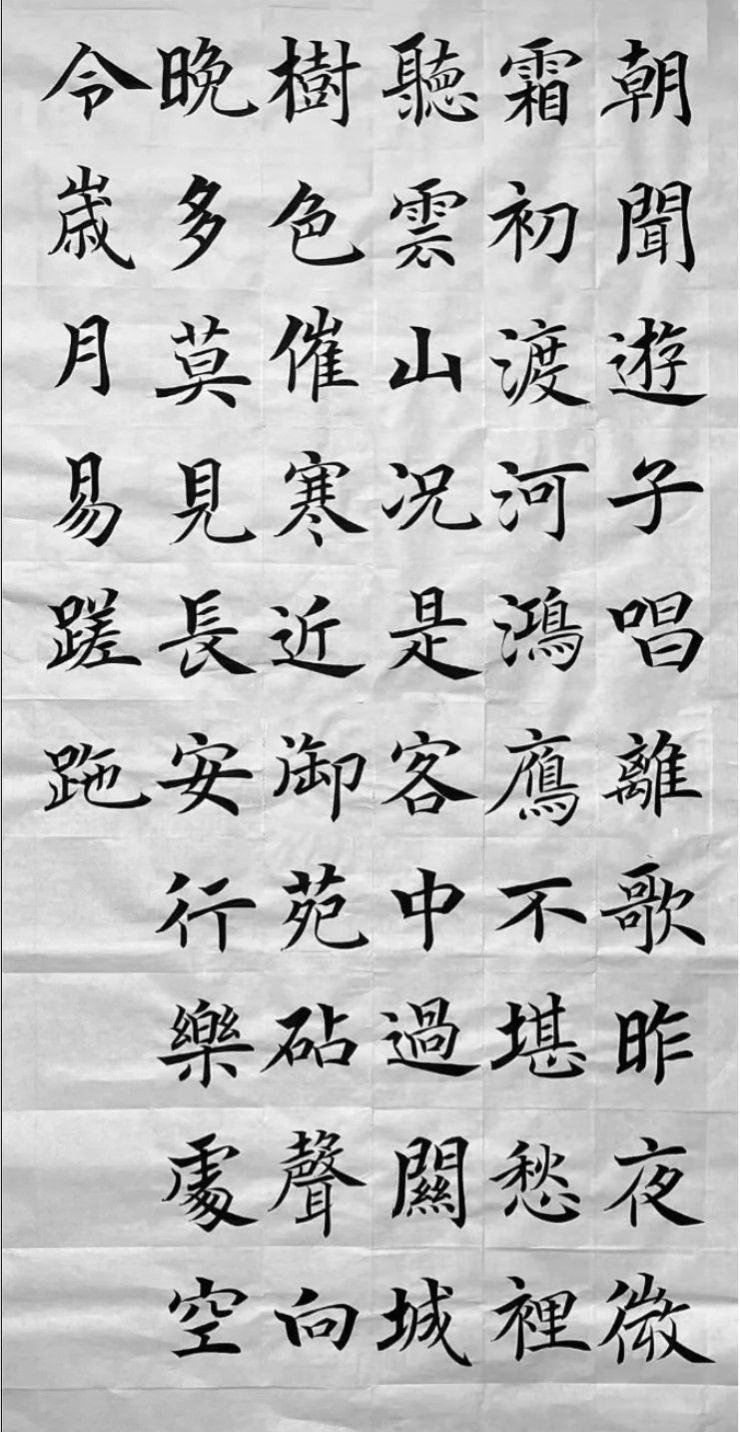 朝聞遊子唱離歌昨夜微
霜初渡河鴻鴈不堪愁裡
聽雲山况是客中過關城
樹色催寒近御苑砧聲向
晚多莫見長安行樂處空
令歲月易蹉跎